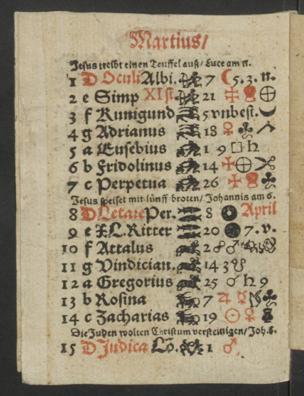 Martius/
Jesus treibt einen Teuffel auß/ Luce am 11.
1 D Oculi Albi. 7 ☾ 5. 3. n.
2 e Simp XI st. 21
3 f Kunigund 5 vnbest.
4 g Adrianus 18 ♀
5 a Eusebius 1 9 □ ♄
6 b Fridolinus 14
7 c Perpetua 26
Jesus speiset mit fünff broten/ Johannis am 6.
8 D Letare Per. 8 April
9 e XL. Ritter 20 7. v.
10 f Attalus 2 ☍ ♂
11 g Vindician. 14 3
12 a Gregorius 25 ♂ ♄ 9
13 b Rosina 7 ♃ ☿
14 c Zacharias 19 ☉ ♀
Die Juden wolten Christum versteinigen/ Joh. 8.
15 D Judica Lo. 1 ♂